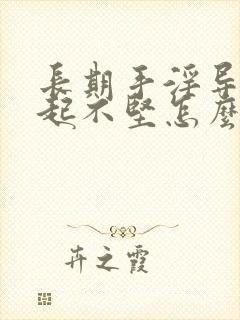 長期手淫导
起不堅怎麼
卉之霞